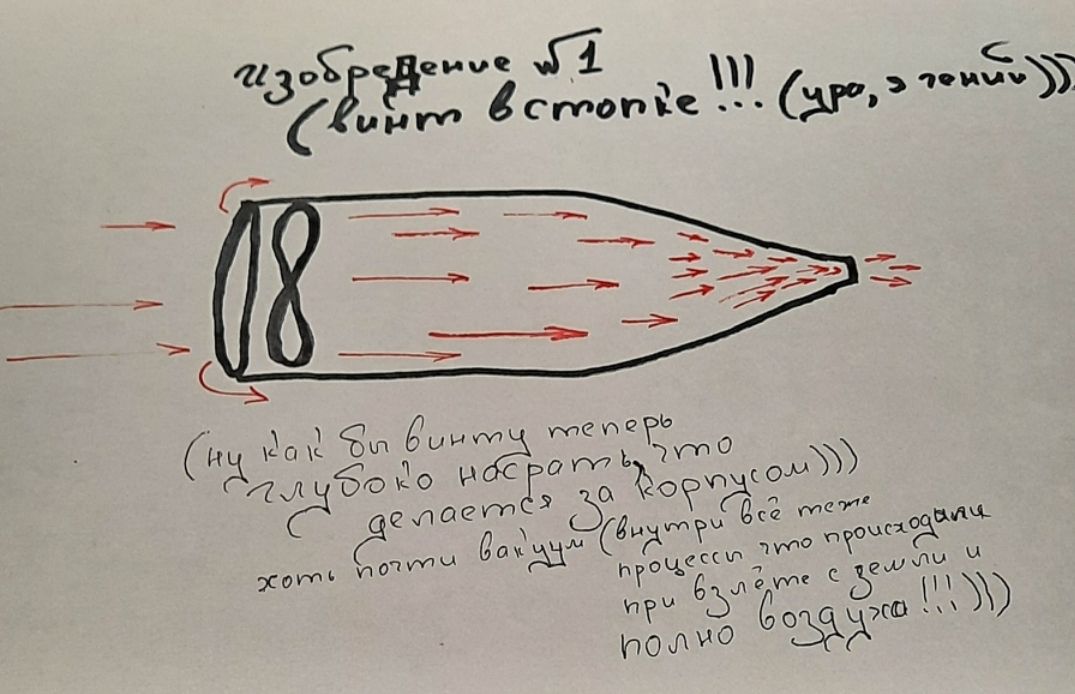 изобредение №1
(винт в стопке !!! (ура, я гений)))
(ну как бы винту теперь
глубоко насрать, что
( делается за корпусом)))
хоть почти вакуум (внутри всё теже
процессы что происходили
при взлёте с земли и
полно воздуха!!!)))